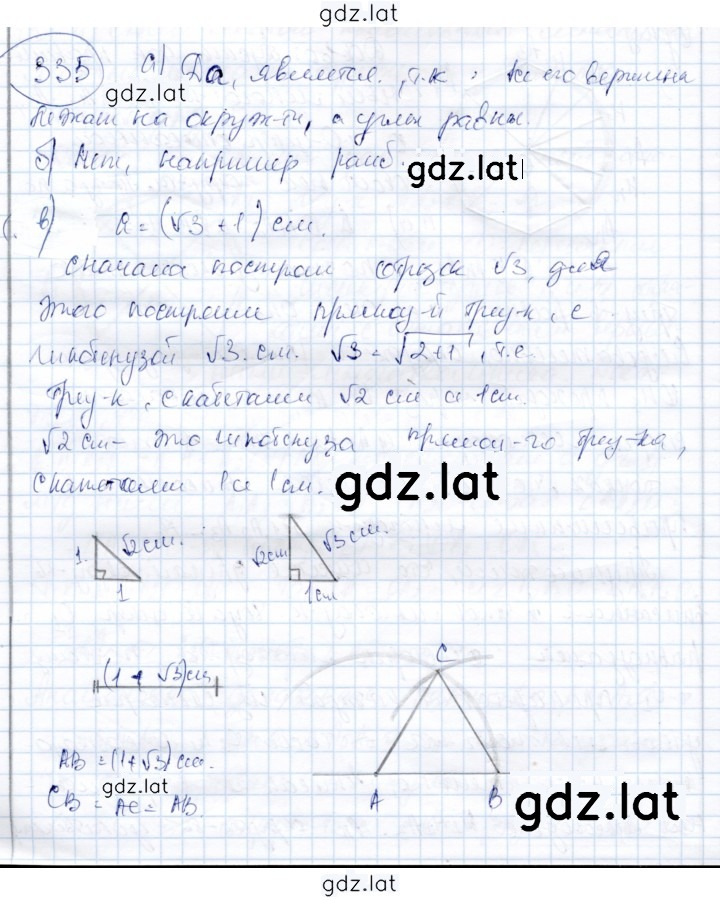 gdz.lat
335 а) Да, является, т.к. все его вершина
gdz.lat
лежат на окруж-ти, а углы равны.
б) Нет, например ромб.
gdz.lat
в) a = (√3 + 1) см.
сначала построим отрезок √3, для
этого построим прямоу-й треу-к, с
гипотенузой √3 см. √3 = √2+1, т.е.
треу-к, с катетами √2 см и 1 см.
√2 см - это гипотенуза прямоу-го треу-ка,
с катетами 1 и 1 см.
gdz.lat
1 √2 см. √2 см √3 см.
1 1 см
C
(1 + √3) см
AB = (1+√3) см.
gdz.lat
CB = AC = AB.
A B
gdz.lat
gdz.lat